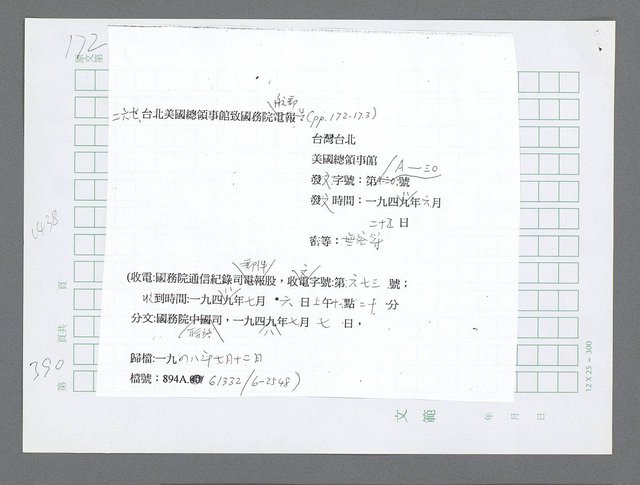 172
原文第
二六七、台北美國總領事館致國務院電報(pp.172-173)
航郵
台灣台北
美國總領事館
A—30
發文字號：第A-30號
發文時間：一九四九年六月
二十五日
密等：無密等
郵件
(收電:國務院通信紀錄司電報股，收電字號:第六七三號；
收到時間:一九四九年七月 六 日上午十點二十 分
分文:國務院中國司，一九四九年七月 七 日，
歸檔:一九四八年七月十二日
檔號：894A. 61332/6-2548)
1438
頁
頁共
390
第
12 X 25 = 300
文 範
年 月 日